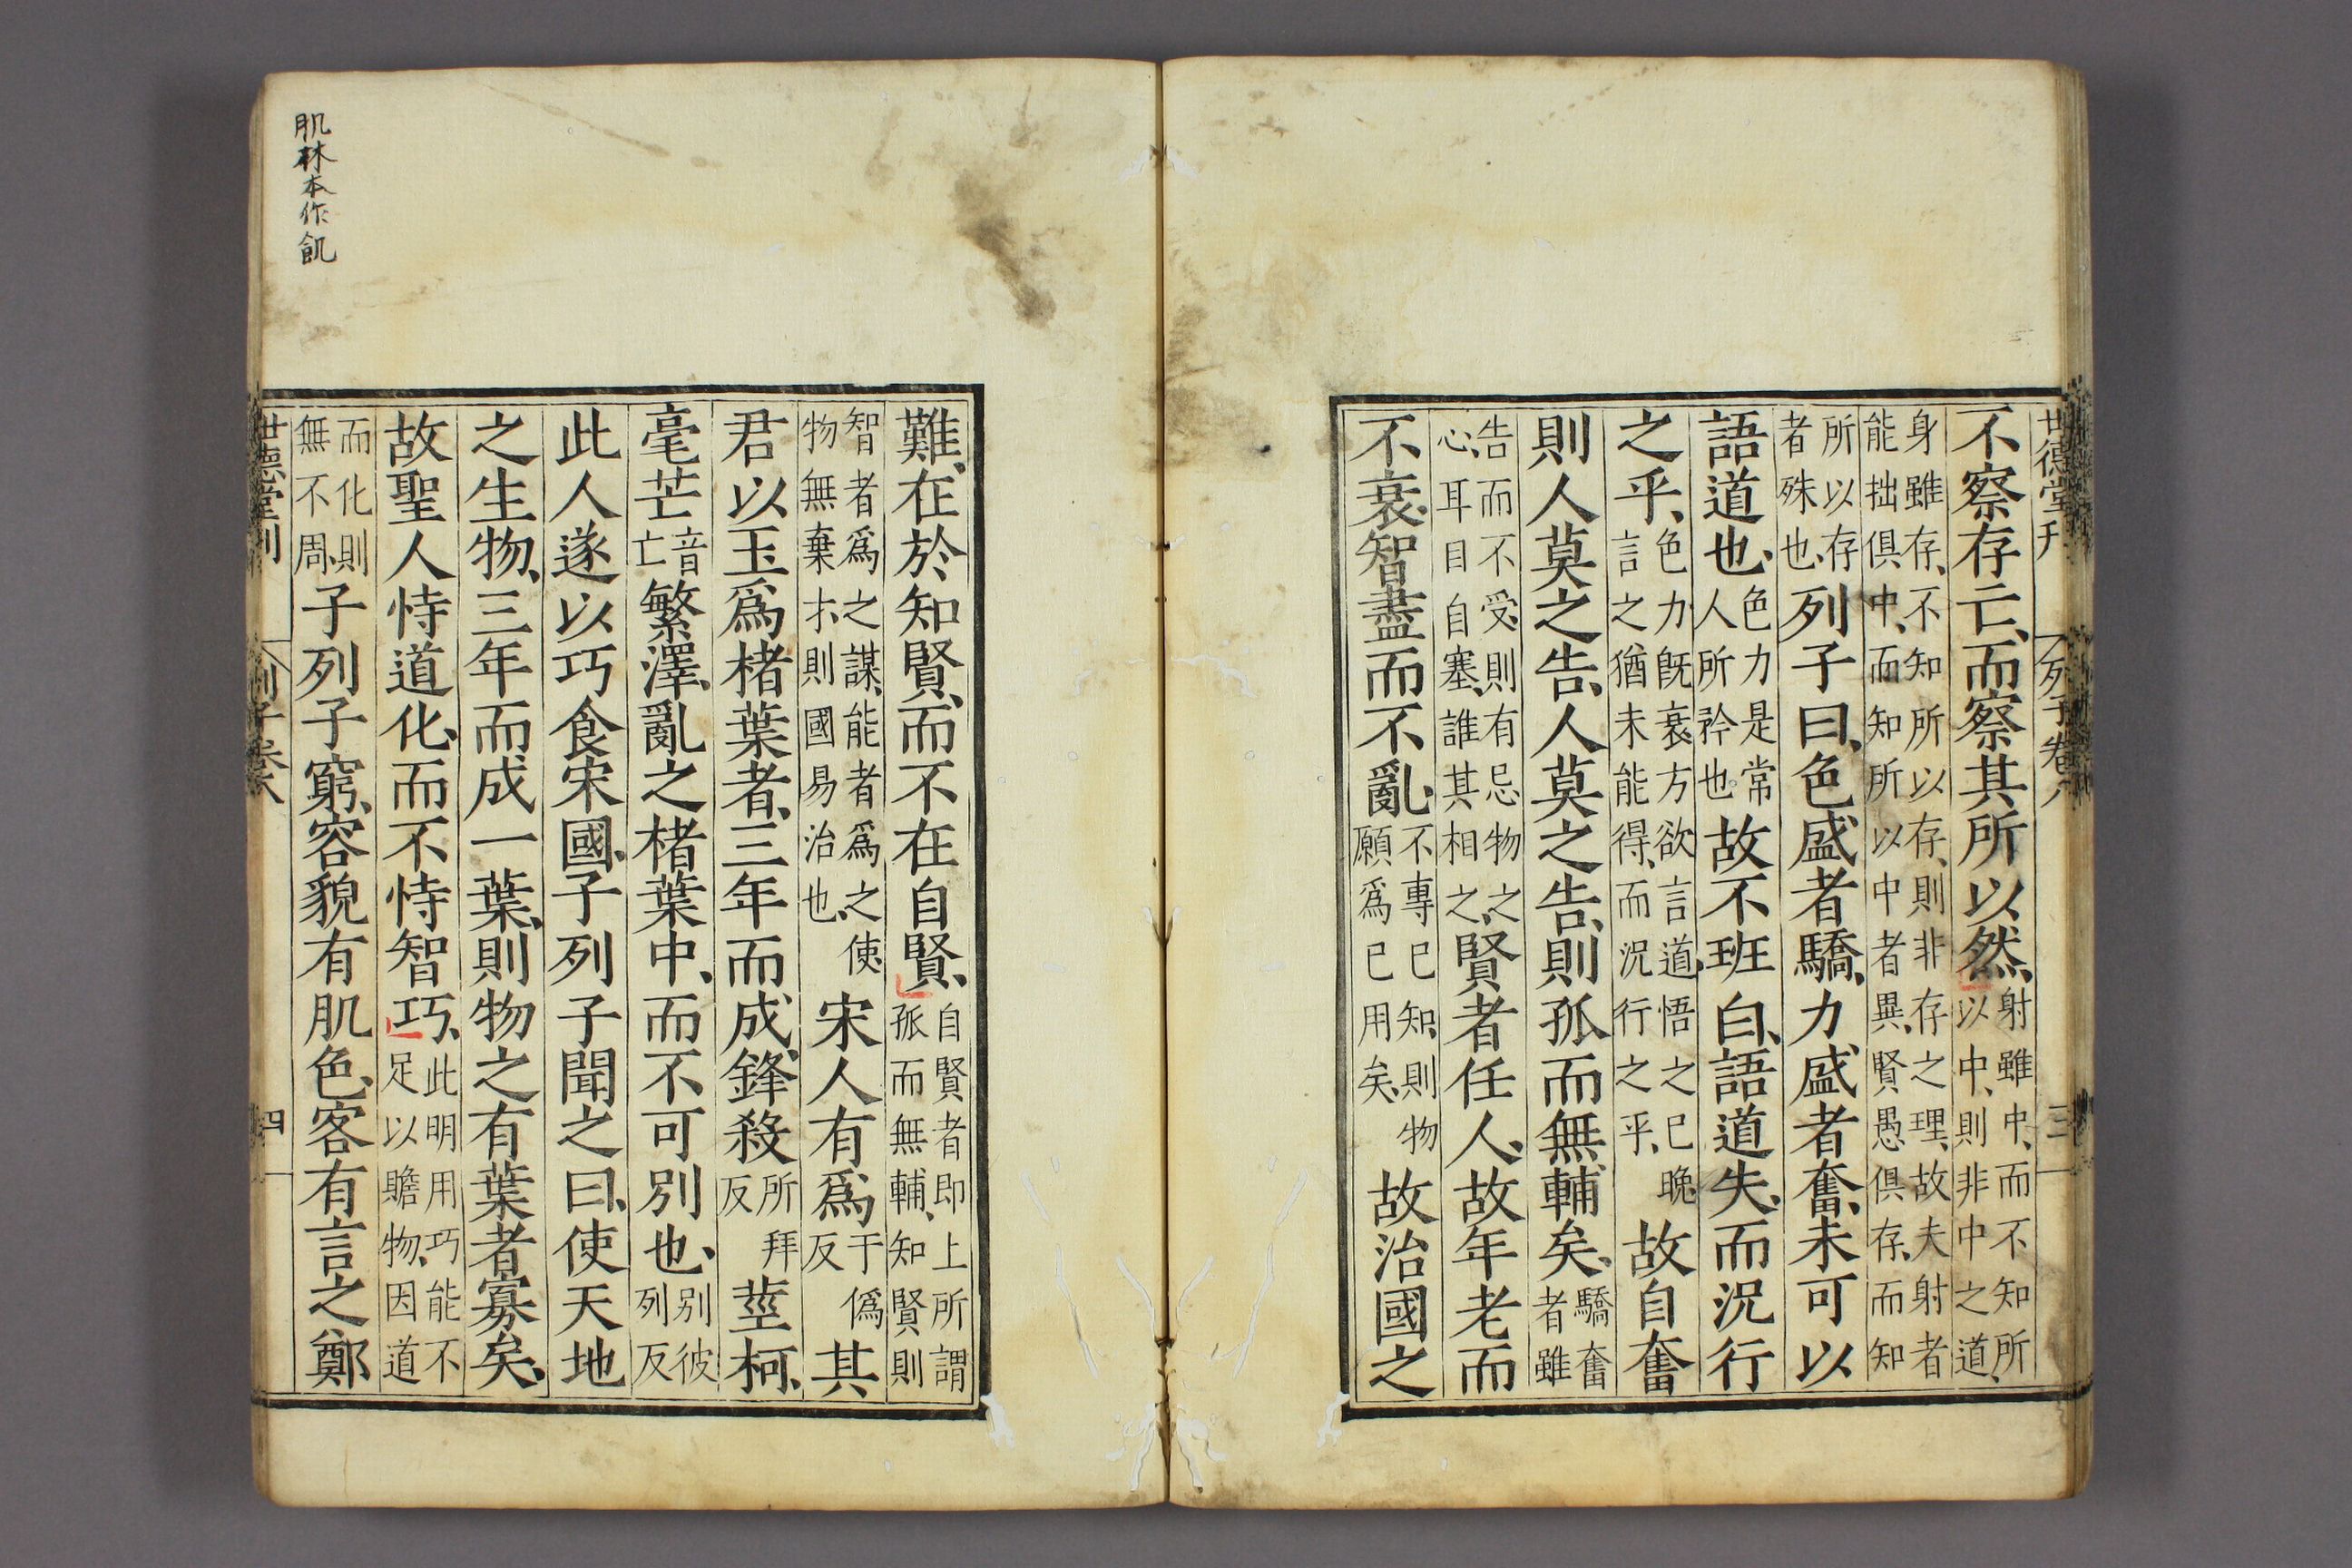 世德堂刋 列子卷八 三
不察存亡而察其所以然射雖中而不知所以中則非中之道
身雖存不知所以存則非存之理故夫射者能拙俱中而知所以中者異賢愚俱存而知
所以存者殊也列子曰色盛者驕力盛者奮未可以
語道也色力是常人所矜也故不班白語道失而況行
之乎色力旣衰方欲言道悟之已晚言之猶未能得而況行之乎故自奮
則人莫之告人莫之告則孤而無輔矣驕奮者雖
告而不受則有忌物之心耳目自塞誰其相之賢者任人故年老而
不衰智盡而不亂不專已知則物願爲已用矣故治國之
難在於知賢而不在自賢自賢者即上所謂孤而無輔知賢則
智者爲之謀能者爲之使物無棄才則國易治也宋人有爲于僞反其
君以玉爲楮葉者三年而成鋒殺所拜反莖柯
毫芒音亡繁澤亂之楮葉中而不可別也別彼列反
此人遂以巧食宋國子列子聞之曰使天地
之生物三年而成一葉則物之有葉者寡矣
故聖人恃道化而不恃智巧此明用巧能不足以贍物因道
而化則無不周子列子窮容貌有肌色客有言之鄭
世德堂刊 列子卷八 四
肌林本作飢